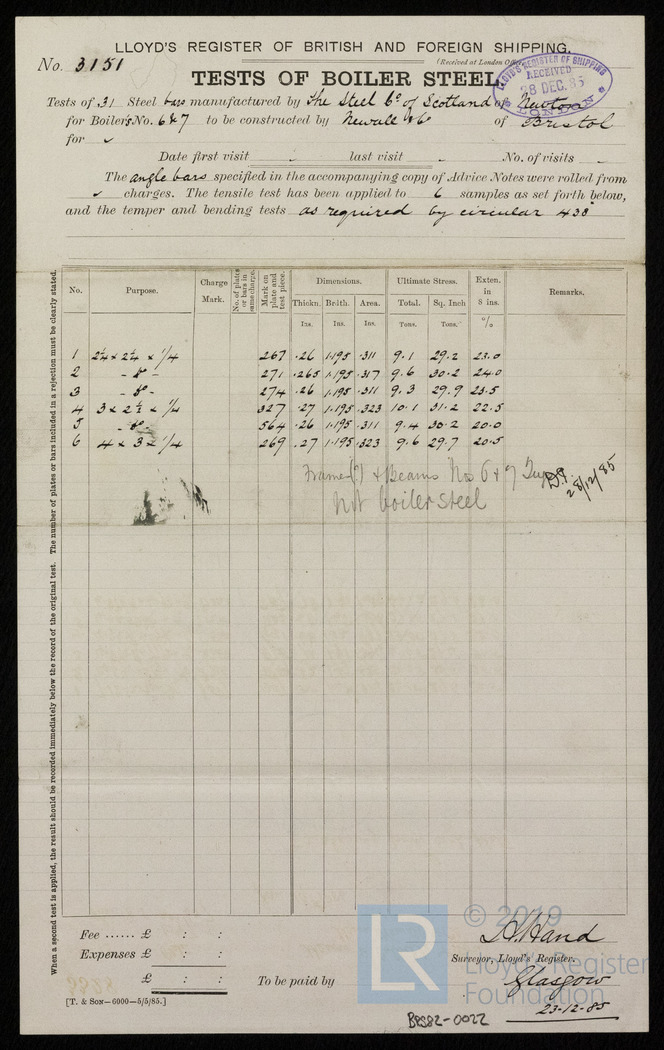 LLOYD'S REGISTER OF BRITISH AND FOREIGN SHIPPING.
No. 3151
(Received at London Office
TESTS OF BOILER STEEL
LLOYD'S REGISTER OF SHIPPING RECEIVED 28 DEC. 85 LONDON
Tests of 31 Steel bars manufactured by The Steel Co of Scotland of Newton
for Boilers No. 6&7 to be constructed by Newall & Co of Bristol
for ✓
Date first visit last visit No. of visits
The angle bars specified in the accompanying copy of Advice Notes were rolled from
✓ charges. The tensile test has been applied to 6 samples as set forth below,
and the temper and bending tests as required by circular 438
When a second test is applied, the result should be recorded immediately below the record of the original test. The number of plates or bars included in a rejection must be clearly stated.
No. Purpose. Charge Mark. No. of plates or bars in same charge. Mark on plate and test piece. Dimensions. Ultimate Stress. Exten. in 8 ins. Remarks.
Thickn. Brdth. Area. Total. Sq. Inch
Ins. Ins. Ins. Tons. Tons. %
1 2¼ x 2¼ x 1/4 267 .26 1.195 .311 9.1 29.2 23.0
2 - do - 271 .265 1.195 .317 9.6 30.2 24.0
3 - do - 274 .26 1.195 .311 9.3 29.9 23.5
4 3 x 2½ x 1/4 327 .27 1.195 .323 10.1 31.2 22.5
5 - do - 564 .26 1.195 .311 9.4 30.2 20.0
6 4 x 3 x 1/4 269 .27 1.195 .323 9.6 29.7 20.5
Frames(?) & Beams Nos 6 & 7
28/12/85
Not boiler steel
Fee ...... £ : :
Expenses £ : :
£ : :
To be paid by
H. Hand
Surveyor, Lloyd's Register.
Glasgow
23-12-85
[T. & SON—6000—5/5/85.]
BRS82-0022
LR
© 2019
Lloyd's Register
Foundation